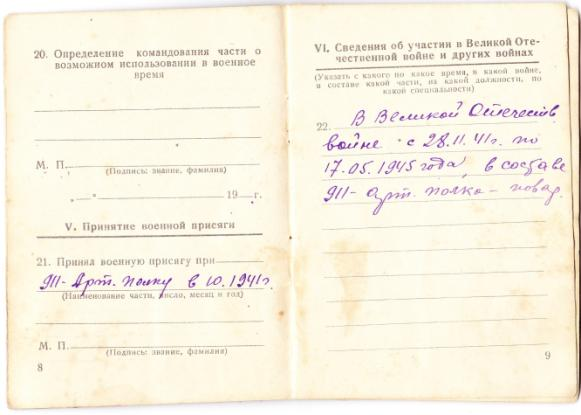 20. Определение командования части о
возможном использовании в военное
время
М. П.
(Подпись: звание, фамилия)
„ — “ 19 — г.
V. Принятие военной присяги
21. Принял военную присягу при
911- Арт. полку в 10. 1941г.
(Наименование части, число, месяц и год)
М. П.
(Подпись: звание, фамилия)
8
VI. Сведения об участии в Великой Оте-
чественной войне и других войнах
(Указать с какого по какое время, в какой войне,
в составе какой части, на какой должности, по
какой специальности)
22. В Великой Отечеств
войне с 28.11.41г. по
17.05.1945 года, в составе
911- арт. полка - повар.
9